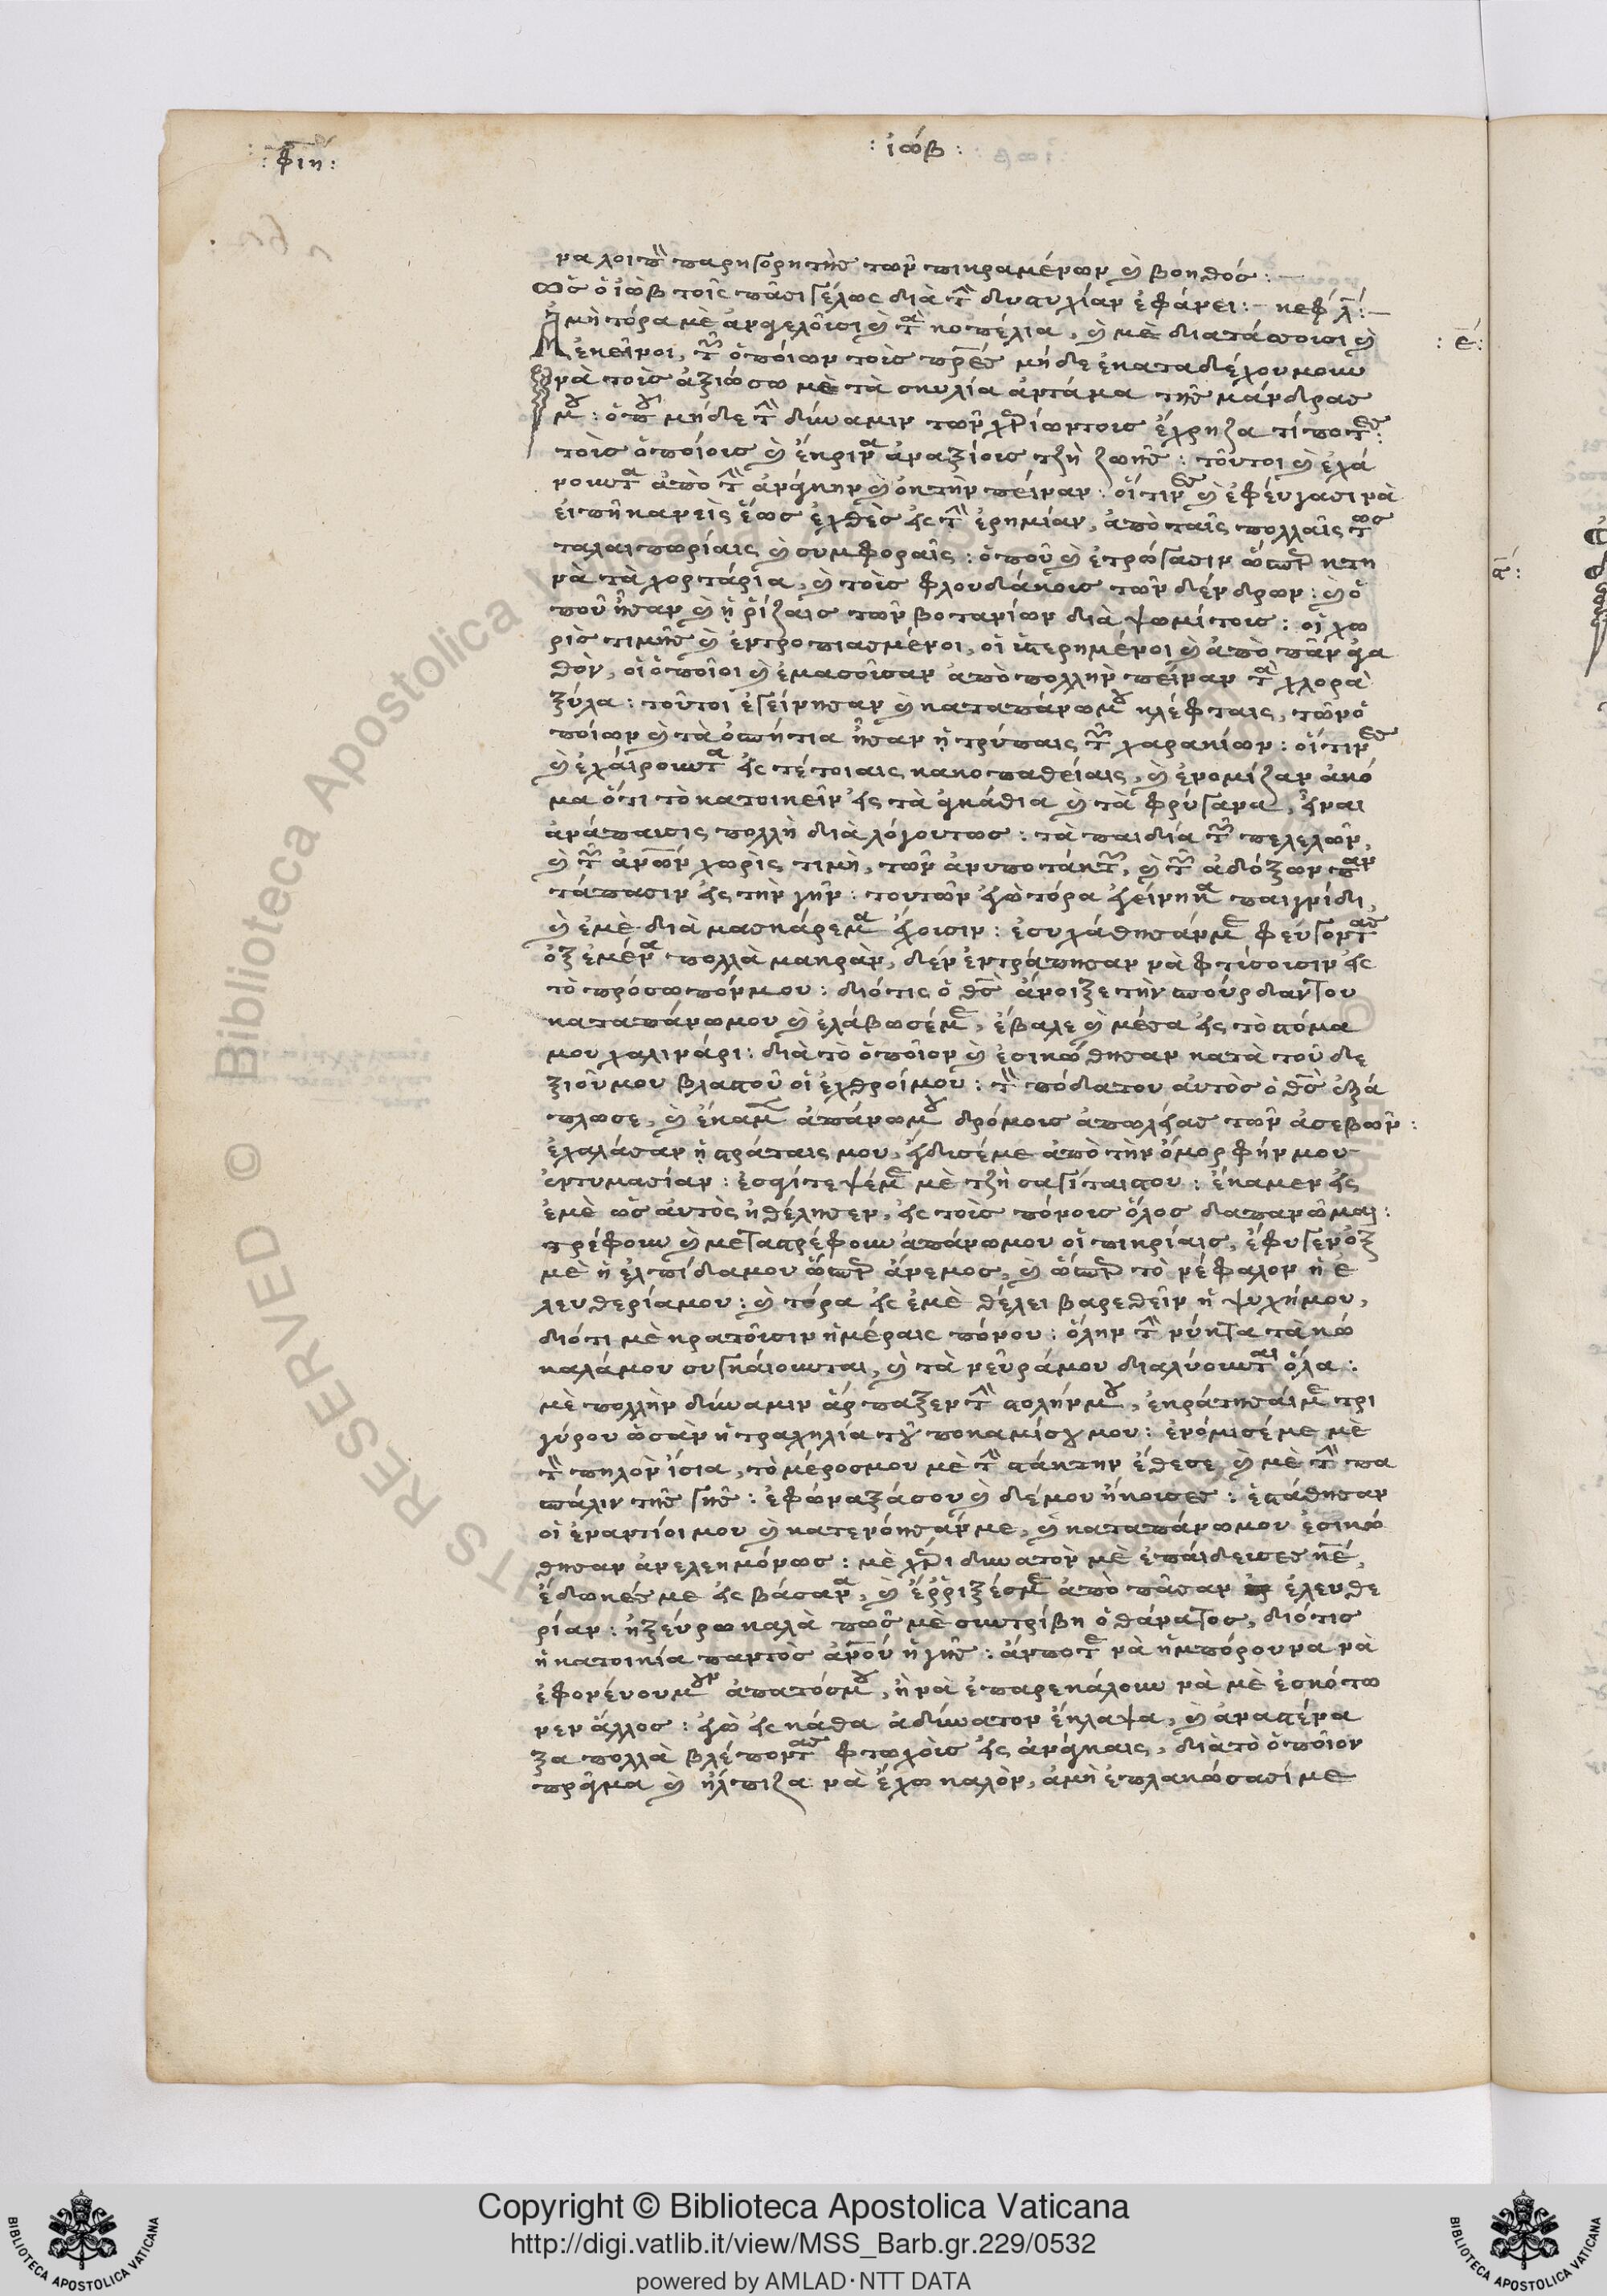 : φιη :
: ἰώβ :
να λοιπὸν παρηγορητὴς τῶν πικραμένων καὶ βοηθός :—
ὡς ὁ ἰὼβ τοῖς πᾶσι γέλως διὰ τὴν δυστυχίαν ἐφάνει :— κεφ λ :—
Ἀμὴ τόρα μὲ ἀνγελοῦσι καὶ τὰ κοπέλια, καὶ μὲ διατάσσουσι καὶ
: ε :
ἐκεῖνοι, τῶν ὁποίων τοὺς πατέρες μήδε ἐκαταδέχουμουν
νὰ τοὺς ἀξιώσω μὲ τὰ σκυλία ἀντάμα τῆς μάνδρας
μου : ὁποῦ μήδε τὴν δύναμιν τῶν χερίωντους ἔχρηζα τίποτες :
τοὺς ὁποίους καὶ ἔκρινα ἀναξίους τζῆ ζωῆς : τοῦτοι καὶ ἐχά
νουνταν ἀπὸ τὴν ἀνάγκην καὶ ἐκ τὴν πείναν : οἵτινες καὶ ἐφεύγασι νὰ
εἰπῆ κανεὶς ἕως ἐχθὲς εἰς τὴν ἐρημίαν, ἀπὸ ταῖς πολλαῖς τως
ταλαιπωρίαις καὶ συμφοραῖς : ὁποῦ καὶ ἐτρώγασιν ὥσπερ κτη
νὰ τὰ χορτάρια, καὶ τοὺς φλουδάκους τῶν δένδρων : καὶ ὁ
ποῦ ἦσαν καὶ ἡ ῥίζαις τῶν βοτανίων διὰ ψωμί τους : οἱ χω
ρὶς τιμῆς καὶ ἐντροπιασμένοι, οἱ ὑστερημένοι καὶ ἀπὸ πᾶν ἀγα
θὸν, οἱ ὁποῖοι καὶ ἐμασοῦσαν ἀπὸ πολλὴν πείναν τὰ χλορὰ
ξύλα : τοῦτοι ἐγείρησαν καὶ καταπάνωμου κλέφταις, τῶν ὁ
ποίων καὶ τὰ ὁσπήτια ἦσαν ἡ τρύπαις τῶν χαρακίων : οἵτινες
καὶ ἐχαίρουνταν εἰς τέτοιαις κακοπαθείαις, καὶ ἐνομίζαν ἀκό
μα ὅτι τὸ κατοικεῖν εἰς τὰ ἀγκάθια καὶ τὰ φρύγανα, εἶναι
ἀνάπαυσις πολλὴ διὰ λόγουντως : τὰ παιδία τῶν πελελῶν,
καὶ τῶν ἀνθρώπων χωρὶς τιμὴ, τῶν ἀνυποτάκτων, καὶ τῶν ἀδόξων παν
τάπασιν εἰς τὴν γῆν : τουτῶν ἐγὼ τόρα ἐγείνηκα παιγνίδι,
καὶ ἐμὲ διὰ μασκάρεμα ἔχουσιν : ἐσυχάθησάν με φεύγοντας
ἐξ ἐμένα πολλὰ μακρὰν, δὲν ἐντράπησαν νὰ φτύσουσιν εἰς
τὸ πρόσωπόν μου : διότις ὁ θεὸς ἄνοιξε τὴν σπούρδαν του
καταπάνωμου καὶ ἐλάβωσέμε, ἔβαλε καὶ μέσα εἰς τὸ στόμα
μου χαλινάρι : διὰ τὸ ὁποῖον καὶ ἐσικώθησαν κατὰ τοῦ δε
ξιοῦ μου βλαστοῦ οἱ ἐχθροί μου : τὸν πόδατου αὐτὸς ὁ θεὸς ἐξά
πλωσε, καὶ ἔκαμεν ἀπάνωμου δρόμους ἀπωλείας τῶν ἀσεβῶν :
ἐχαλάσαν ἡ στράταις μου, ἔγδυσέ με ἀπὸ τὴν ὄμορφήν μου
ἐντυμασίαν : ἐσφίτεψέμε μὲ τζῆ σαγίταις του : ἔκαμεν εἰς
ἐμὲ ὡς αὐτὸς ἠθέλησεν, εἰς τοὺς πόνους ὅλος δαπανῶμαι :
στρέφουν καὶ μεταστρέφουν ἀπάνωμου οἱ πικρίαις, ἔφυγεν ἐξ
μὲ ἡ ἐλπίδαμου ὥσπερ ἄνεμος, καὶ ὥσπερ τὸ νέφαλον ἡ ἐ
λευθερίαμου : καὶ τόρα εἰς ἐμὲ θέλει βαρεθεῖν ἡ ψυχήμου,
διότι μὲ κρατοῦσιν ἡμέραις πόνου : ὅλην τὴν νύκτα τὰ κό
καλάμου συγκαίουνται, καὶ τὰ νεῦράμου διαλύουνται ὅλα :
μὲ πολλὴν δύναμιν ἅρπαξεν τὴν στολήνμου, ἐκράτησαίμε τρι
γύρου ὡσὰν ἡ τραχηλία τοῦ ποκαμίσου μου : ἐνόμισέ με μὲ
τὸν πηλὸν ἴσια, τὸ μέροςμου μὲ τὴν στάκτην ἔθεσε καὶ μὲ τὴν πα
σπάλιν τῆς γῆς : ἐφώναξάσου καὶ δέμου ἤκουσες : ἐστάθησαν
οἱ ἐναντίοι μου καὶ κατενόησάν με, καὶ καταπάνωμου ἐσικώ
θησαν ἀνελεημόνως : μὲ χέρι δυνατὸν μὲ ἐπαίδευσες κύριε,
ἔδωκές με εἰς βάσανα, καὶ ἔρριξέςμε ἀπὸ πᾶσαν ἐλευθε
ρίαν : ἠξεύρω καλὰ πῶς μὲ συντρίβη ὁ θάνατος, διότις
ἡ κατοικία παντὸς ἀνθρώπου ἡ γῆς : ἄνποτε νὰ ἠμπόρουνα νὰ
ἐφονεύουμουν ἀπατόςμου, ἢ νὰ ἐπαρεκάλουν νὰ μὲ ἐσκότω
νεν ἄλλος : ἐγὼ εἰς κάθα ἀδύνατον ἔκλαψα, καὶ ἀναστένα
ξα πολλὰ βλέποντας φτωχοὺς εἰς ἀνάγκαις, διὰ τὸ ὁποῖον
πρᾶγμα καὶ ἤλπιζα νὰ ἔχω καλὸν, ἀμὴ ἐπλακώσασί με
α :
Biblioteca Apostolica Vaticana
RIGHTS RESERVED ©
Copyright © Biblioteca Apostolica Vaticana
http://digi.vatlib.it/view/MSS_Barb.gr.229/0532
powered by AMLAD·NTT DATA
BIBLIOTECA APOSTOLICA VATICANA
BIBLIOTECA APOSTOLICA VATICANA